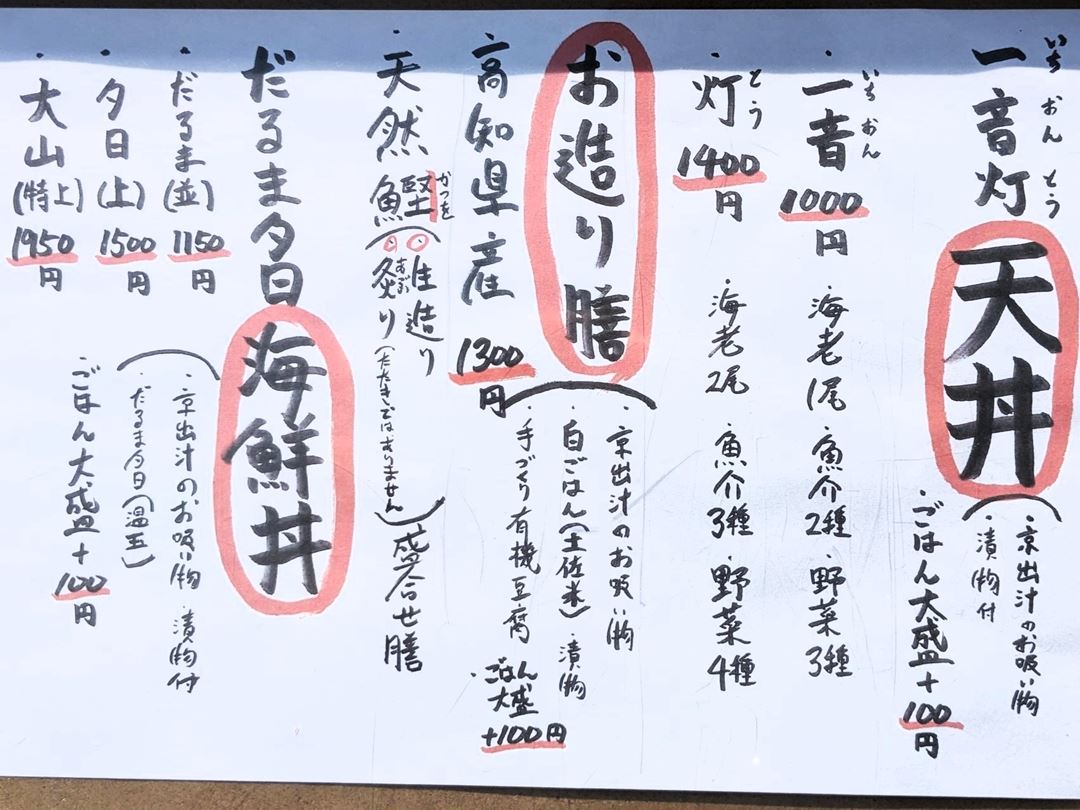 一音灯 天丼
いち おん とう
・京出汁のお吸い物
・漬物付
・ごはん大盛+100円
・一音 1000円 海老1尾 魚介2種・野菜3種
いち おん
・灯 1400円 海老2尾 魚介3種・野菜4種
とう
お造り膳
・京出汁のお吸い物
・白ごはん(土佐米)・漬物
・手づくり有機豆腐
・ごはん大盛+100円
高知県産 1300円
・天然鰹
かつを
生造り
炙り(たたきではありません)
あぶ
盛合せ膳
だるま夕日 海鮮丼
・京出汁のお吸い物・漬物付
・だるま夕日(温玉)
・ごはん大盛+100円
・だるま(並) 1150円
・夕日(上) 1500円
・大山(特上) 1950円